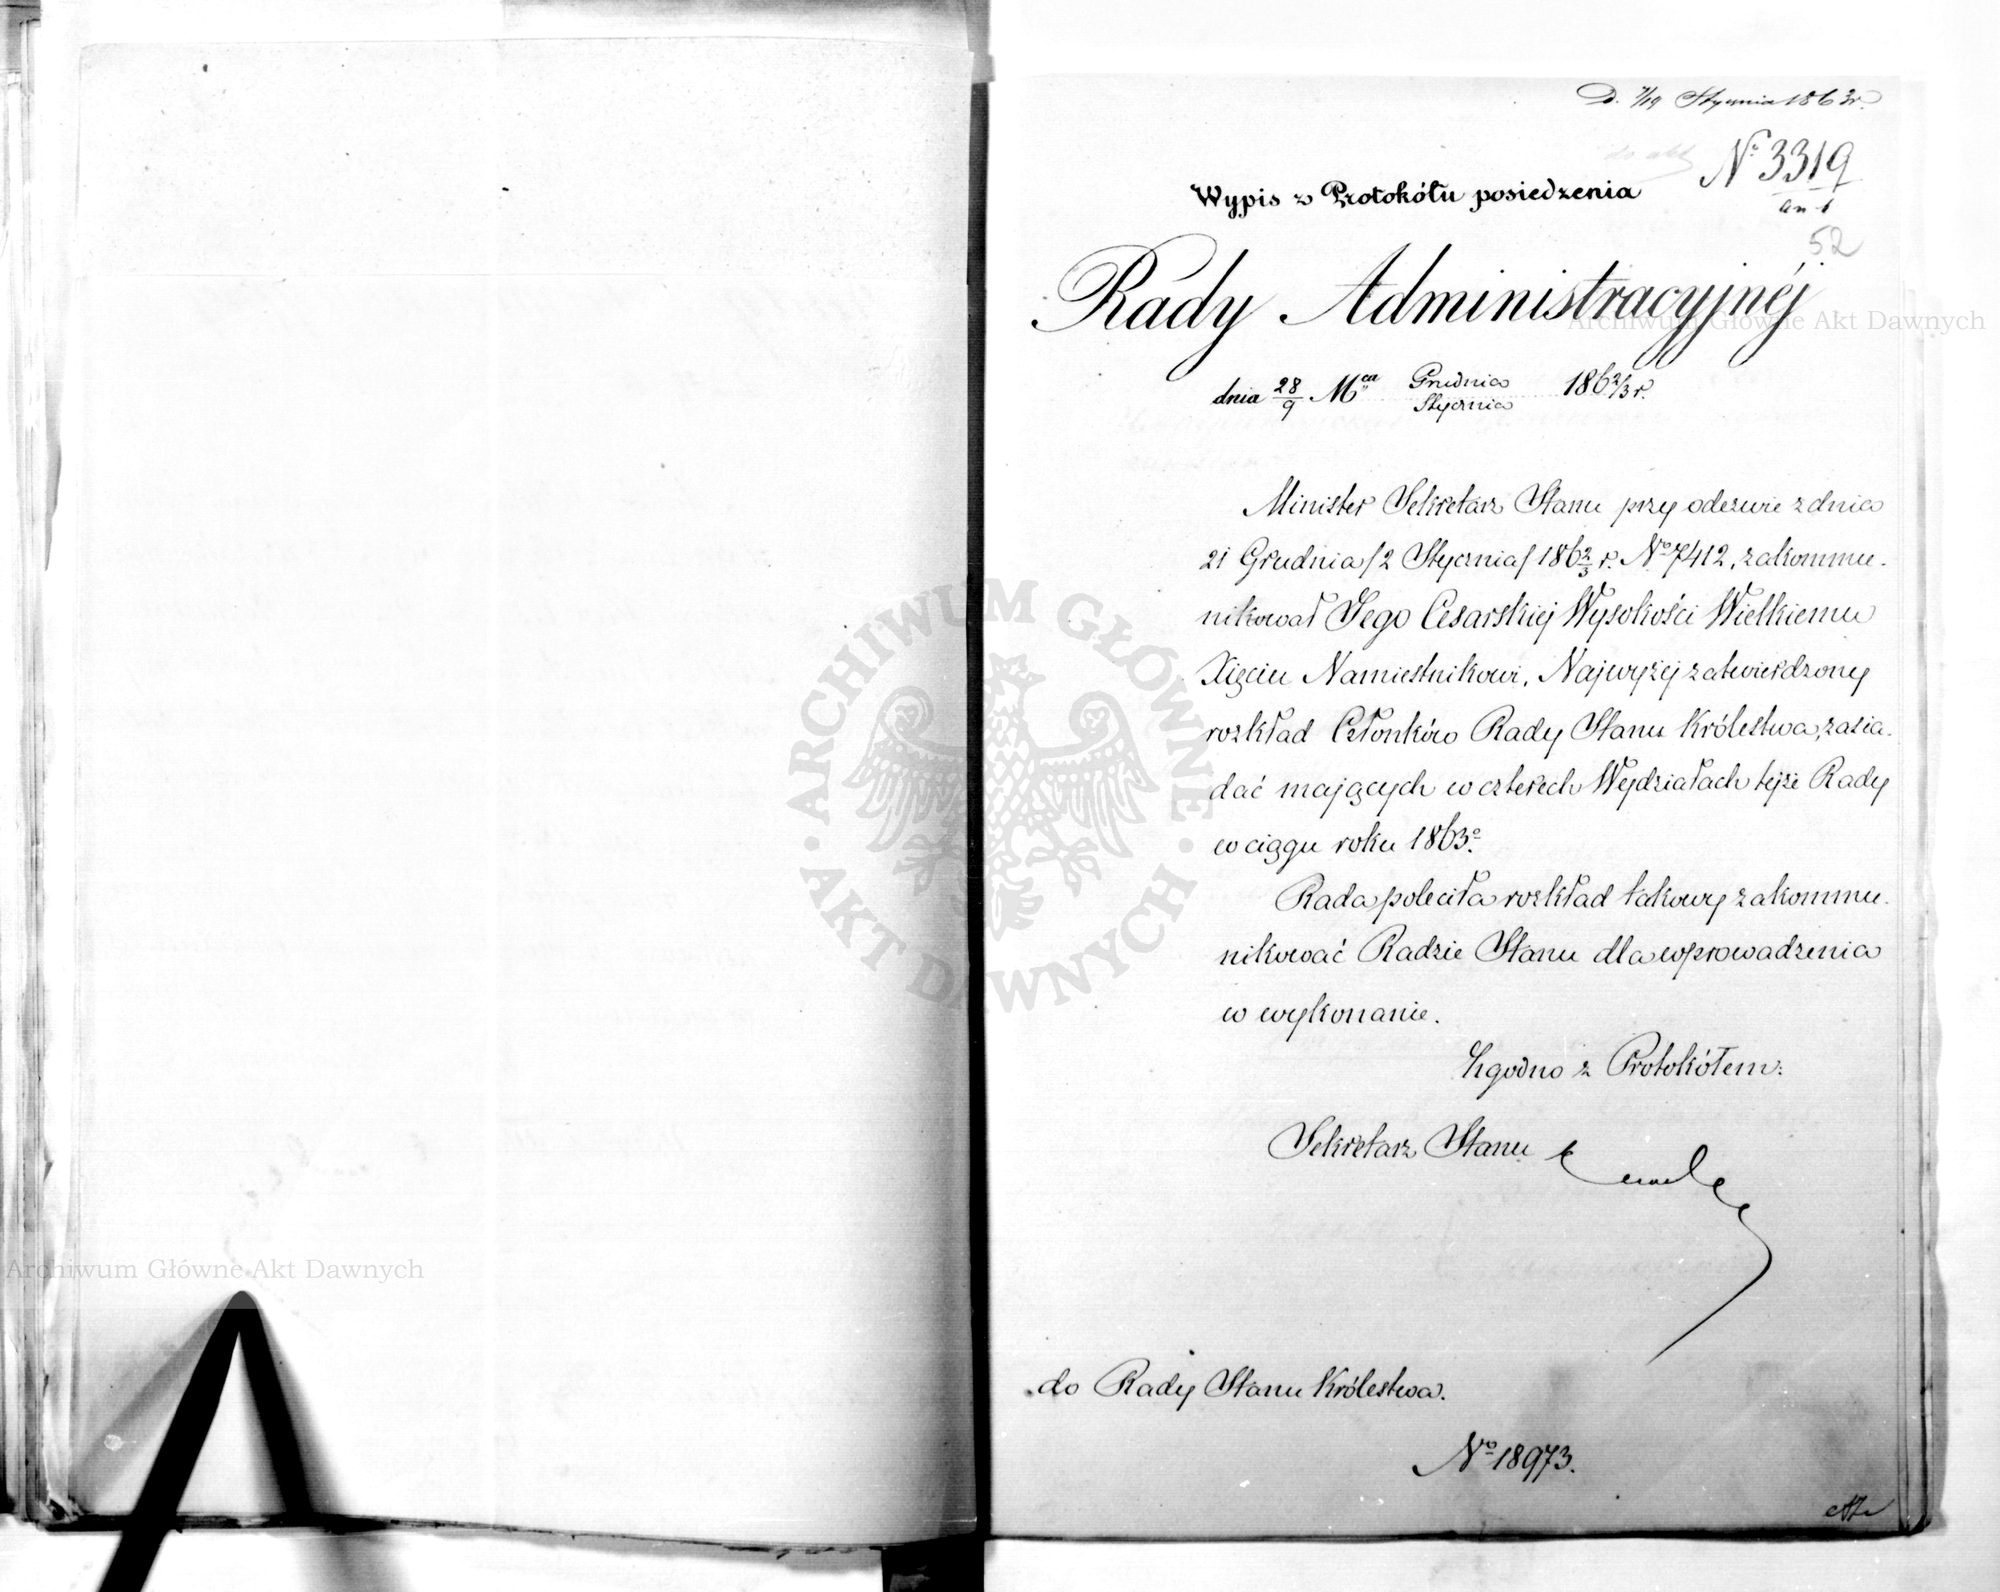 D. 7/19 Stycznia 1863 r.
do akt
Nº 3319
52
Wypis z Protokółu posiedzenia
Rady Administracyjnéj
dnia 28/9 Mca Grudnia/Stycznia 1862/3 r.
Minister Sekretarz Stanu przy odezwie z dnia
21 Grudnia /2 Stycznia/ 1862/3 r. Nº 7412, zakommu-
nikował Jego Cesarskiej Wysokości Wielkiemu
Xięciu Namiestnikowi, Najwyżej zatwierdzony
rozkład Członków Rady Stanu Królestwa, zasia-
dać mających w czterech Wydziałach tejże Rady
w ciągu roku 1863º.
Rada poleciła rozkład takowy zakommu-
nikować Radzie Stanu dla wprowadzenia
w wykonanie.
Zgodno z Protokółem:
Sekretarz Stanu
do Rady Stanu Królestwa.
Nº 18973.
ARCHIWUM GŁÓWNE AKT DAWNYCH
Archiwum Główne Akt Dawnych
Archiwum Główne Akt Dawnych